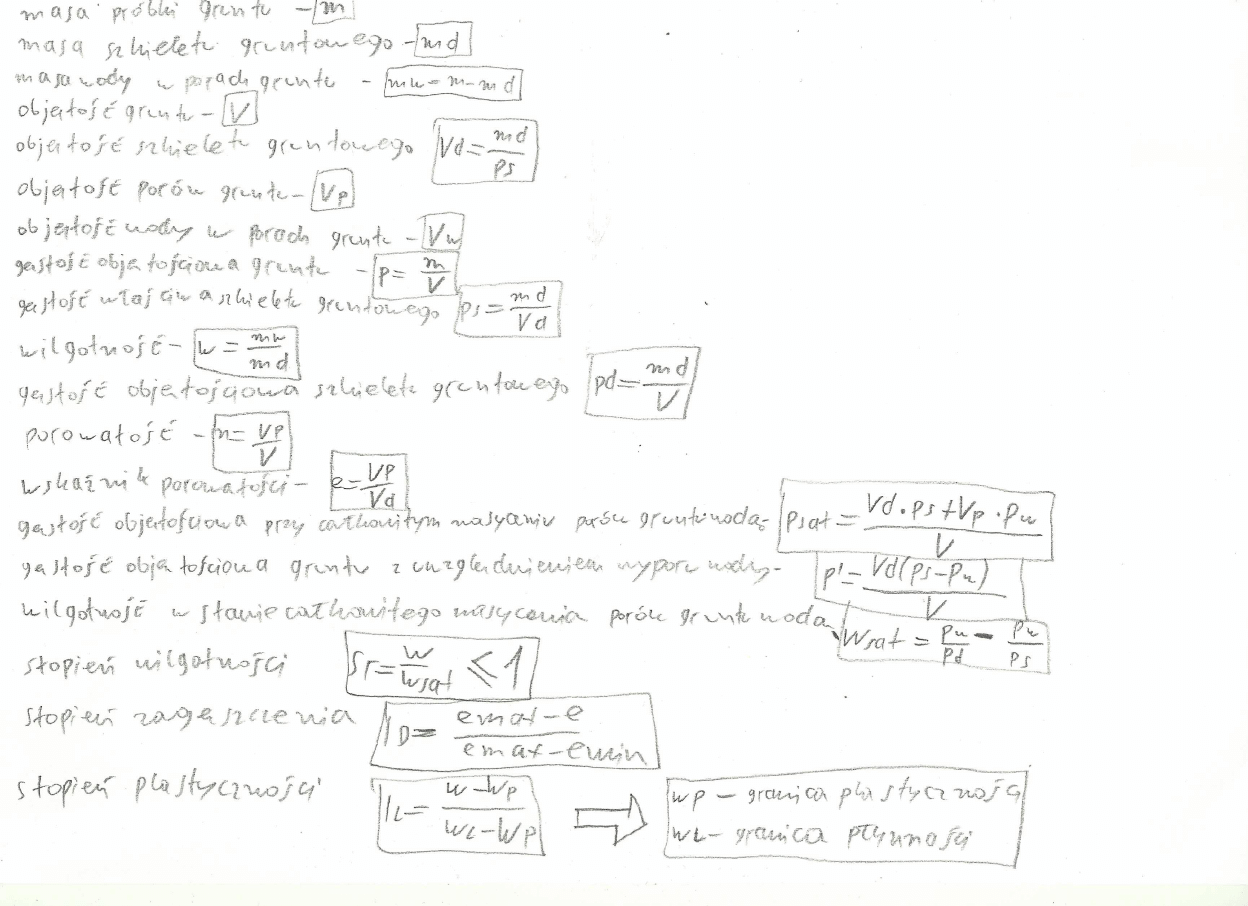 masa próbki gruntu - m
masa szkieletu gruntowego - md
masa wody w porach gruntu - mw = m - md
objętość gruntu - V
objętość szkieletu gruntowego Vd = md/ρs
objętość porów gruntu - Vp
objętość wody w porach gruntu - Vw
gęstość objętościowa gruntu - ρ = m/V
gęstość właściwa szkieletu gruntowego ρs = md/Vd
wilgotność - w = mw/md
gęstość objętościowa szkieletu gruntowego ρd = md/V
porowatość - n = Vp/V
wskaźnik porowatości - e = Vp/Vd
gęstość objętościowa przy całkowitym nasyceniu porów gruntu wodą - ρsat = (Vd · ρs + Vp · ρw)/V
gęstość objętościowa gruntu z uwzględnieniem wyporu wody - ρ' = Vd(ρs - ρw)/V
wilgotność w stanie całkowitego nasycenia porów gruntu wodą wsat = ρw/ρd - ρw/ρs
stopień wilgotności Sr = w/wsat ≤ 1
stopień zagęszczenia ID = (emax - e)/(emax - emin)
stopień plastyczności IL = (w - wp)/(wL - wp) ⇒ wp - granica plastyczności
wL - granica płynności